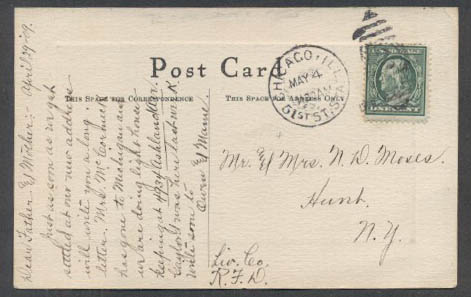 Post Card
THIS SPACE FOR CORRESPONDENCE
THIS SPACE FOR ADDRESS ONLY
CHICAGO, ILL.
MAY 4
AM
51ST ST. STA.
ONE CENT
April 29-09.
Dear Father & Mother:-
Just as soon as we get
settled at our new address
will write you a long
letter. Mrs. McCormick
has gone to Michigan and
we are doing light house
keeping at 4934 Ashland Ave
Taylors was here last week
Write soon to
Owen & Mamel.
Mr. & Mrs. N. D. Moses.
Hunt.
N.Y.
Liv. Co.
R.F.D.